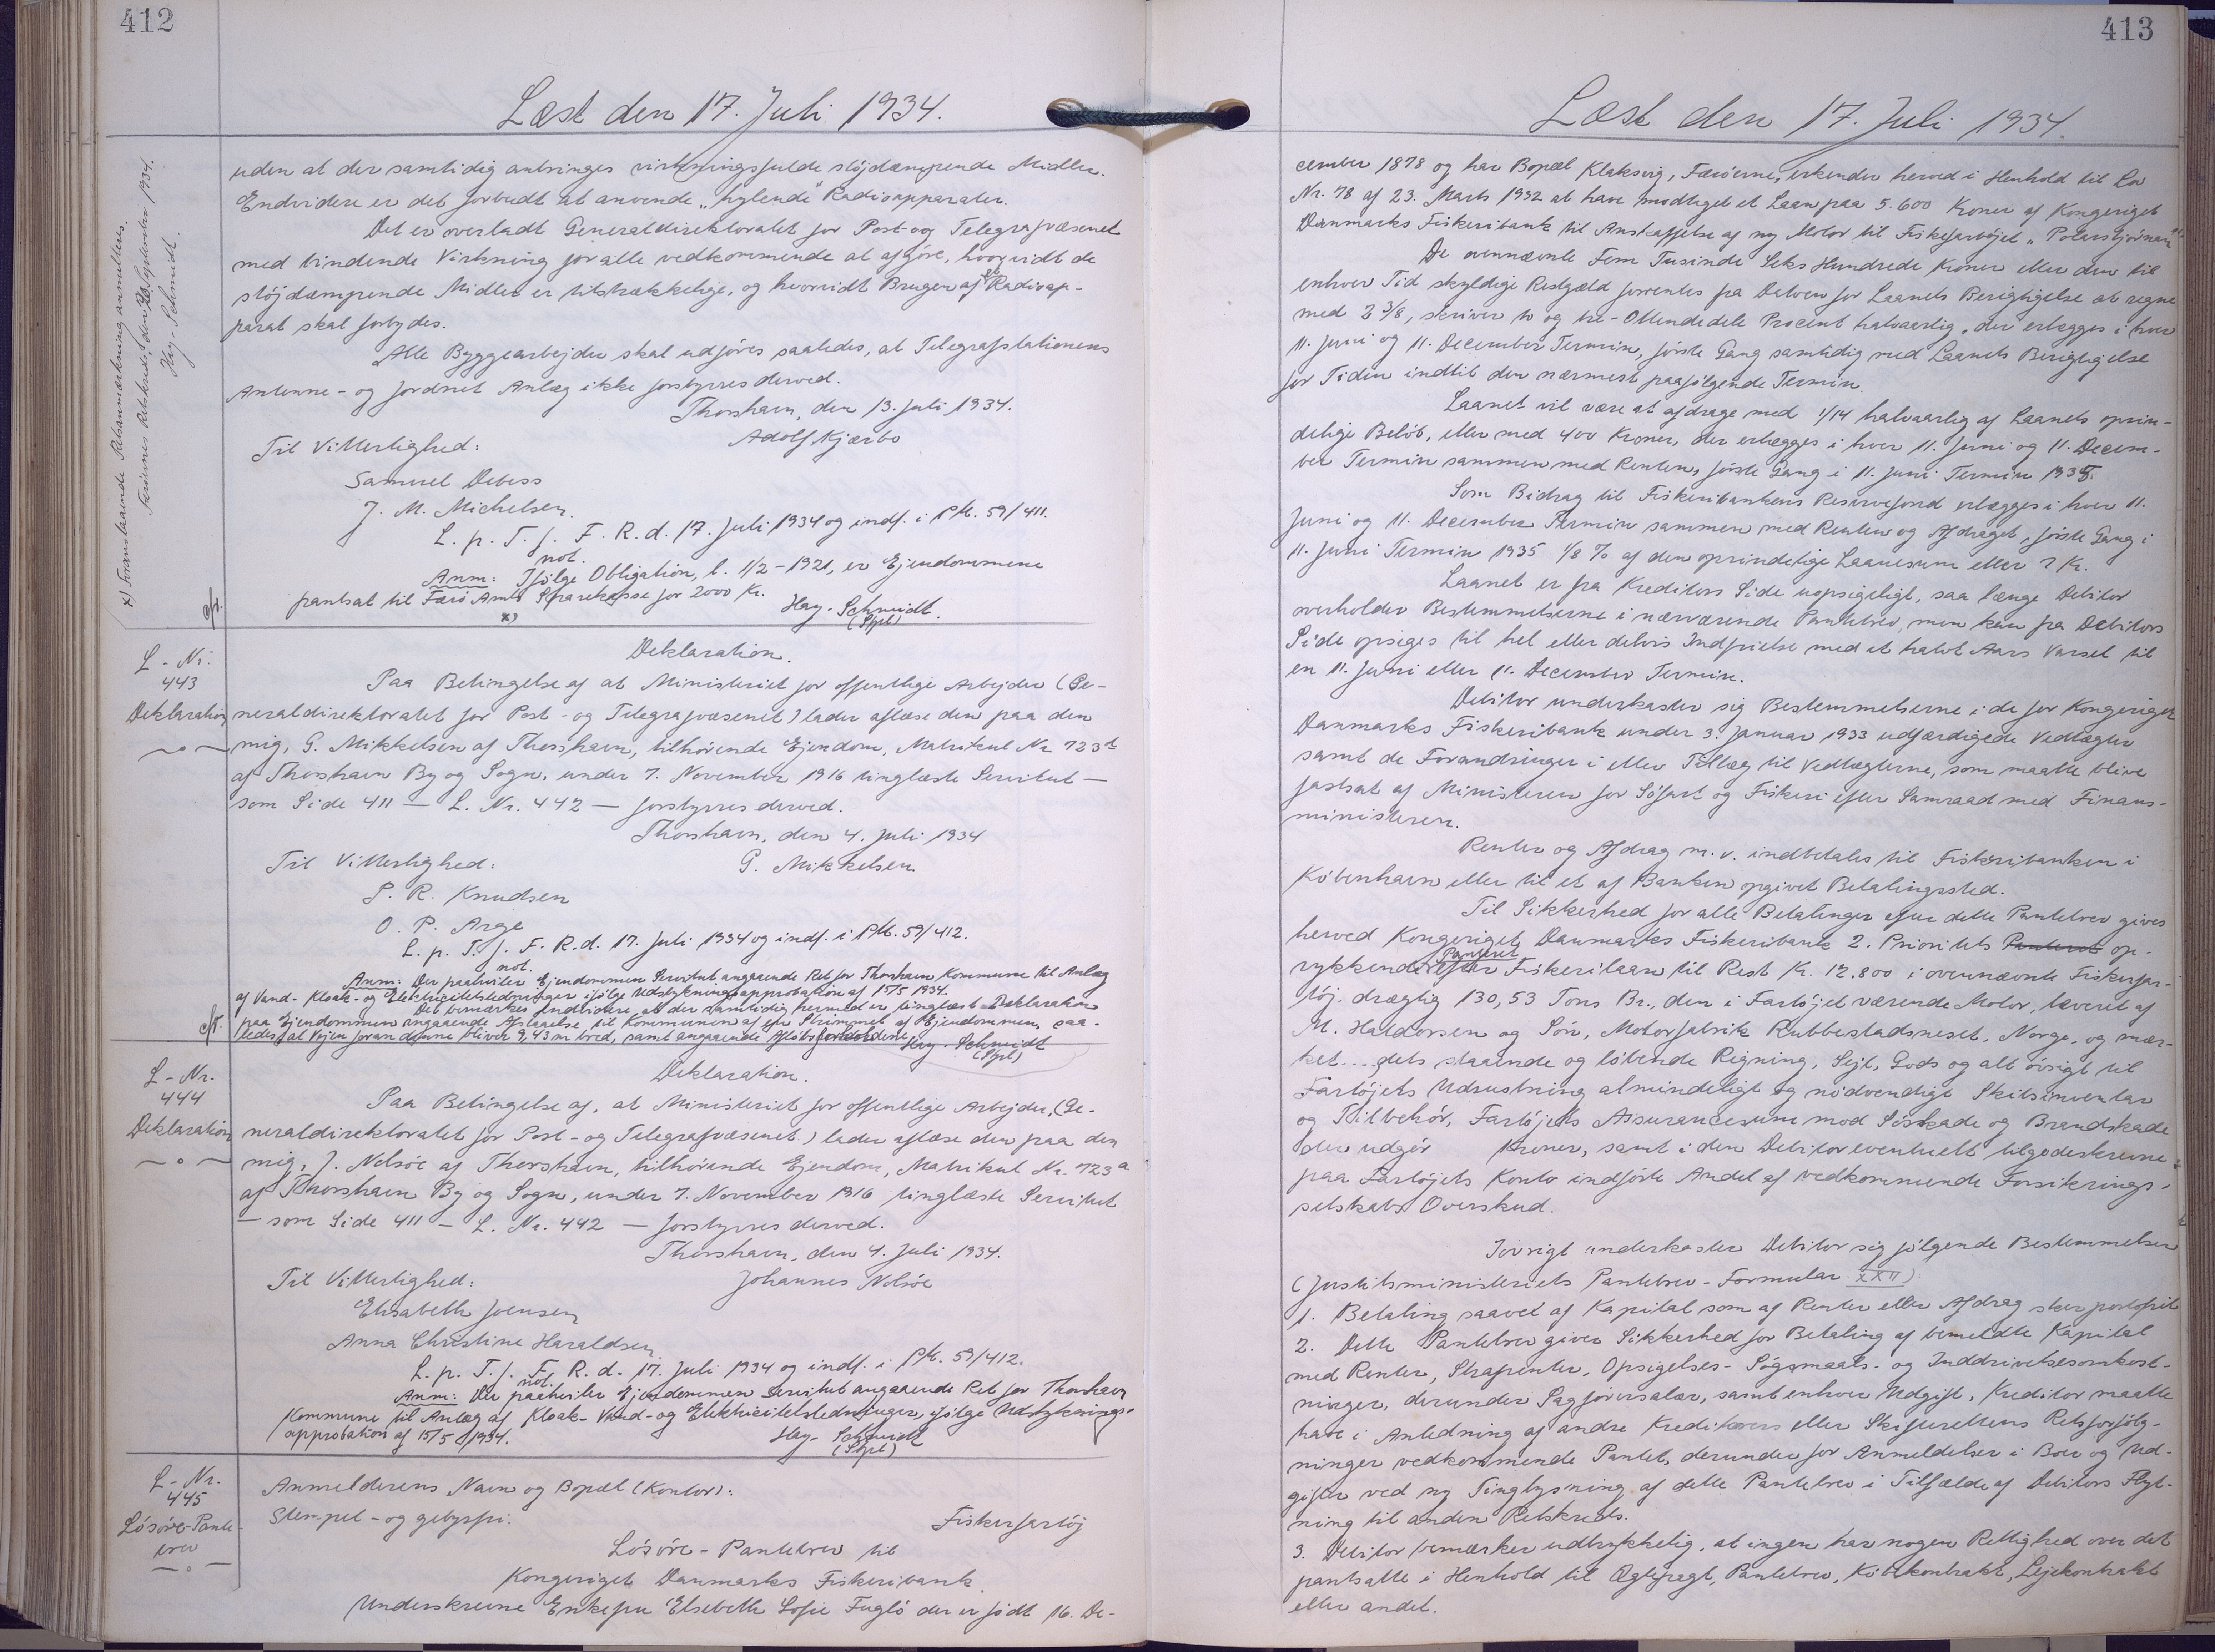 412
Læst den 17. Juli 1934.
uden at der samtidig anbringes virkningsfulde støjdæmpende Midler.
Endvidere er det forbudt at anvende "hylende" Radioapparater.
Det er overladt Generaldirektoratet for Post- og Telegrafvæsenet
med bindende Virkning for alle vedkommende at afgöre, hvorvidt de
stöjdæmpende Midler er tilstrækkelige, og hvorvidt Brugen af Radioap-
parat skal forbydes.
Alle Byggearbejder skal udföres saaledes, at Telegrafstationens
Antenne- og Jordnet Anlæg ikke forstyrres derved.
Thorshavn, den 13. Juli 1934.
Til Vitterlighed: Adolf Kjærbo
Samuel Debess
J. M. Michelsen.
L. p. T. f. F. R. d. 17. Juli 1934 og indf. i PM. 59/411.
not.
Anm: Ifölge Obligation, l. 1/2-1921, er Ejendommene
pantsat til Færö Amts Sparekasse for 2000 Kr.
x) Hay-Schmidt.
(Spl)
x) Foranstaaende Retsanmærkning annulleres.
Færöernes Retskreds, den September 1934.
Hay-Schmidt.
L-Nr.
443
Deklaration
Deklaration.
Paa Betingelse af at Ministeriet for offentlige Arbejder (Ge-
neraldirektoratet for Post- og Telegrafvæsenet) lader aflæse den paa den
mig, G. Mikkelsen af Thorshavn, tilhörende Ejendom, Matrikul Nr. 723
af Thorshavn By og Sogn, under 7. November 1916 tinglæste Servitut —
som Side 411 — L. Nr. 442 — forstyrres derved.
Thorshavn, den 4. Juli 1934
Til Vitterlighed: G. Mikkelsen
P. R. Knudsen
O. P. Arge
L. p. T. f. F. R. d. 17. Juli 1934 og indf. i PM. 59/412.
not.
Anm: Der paahviler Ejendommen Servitut angaaende Ret for Thorshavn Kommune til Anlæg
af Vand- Kloak- og Elektricitetsledninger ifölge Udstykningsapprobation af 15/5 1934.
Det bemærkes endvidere at der samtidig hermed er tinglæst Deklaration
paa Ejendommen angaaende Afstaaelse til Kommunen af en Strimmel af Ejendommen, saa-
ledes at Vejen foran denne bliver 9,43 m bred, samt angaaende Aflöbsforholdene
Hay-Schmidt
(Spl)
L-Nr.
444
Deklaration
Deklaration.
Paa Betingelse af, at Ministeriet for offentlige Arbejder, (Ge-
neraldirektoratet for Post- og Telegrafvæsenet) lader aflæse den paa den
mig, J. Nolsöe af Thorshavn, tilhörende Ejendom, Matrikul Nr. 723 a
af Thorshavn By og Sogn, under 7. November 1916 tinglæste Servitut
— som Side 411 — L. Nr. 442 — forstyrres derved.
Thorshavn, den 4. Juli 1934.
Til Vitterlighed: Johannes Nolsöe
Elisabeth Joensen
Anna Christine Haraldsen
L. p. T. f. F. R. d. 17. Juli 1934 og indf. i PM. 59/412.
not.
Anm: Der paahviler Ejendommen Servitut angaaende Ret for Thorshavn
Kommune til Anlæg af Kloak- Vand- og Elektricitetsledninger, ifölge Udstyknings-
approbation af 15/5 1934.
Hay-Schmidt
(Spl)
L-Nr.
445
Lösöre-Pante-
brev
Anmelderens Navn og Bopæl (Kontor):
Stempel- og gebyrfri. Fiskerfartöj
Lösöre-Pantebrev til
Kongeriget Danmarks Fiskeribank.
Underskrevne Enkefru Elsebeth Sofie Fuglö der er födt 16. De-
413
Læst den 17. Juli 1934.
cember 1878 og har Bopæl Klaksvig, Færöerne, erkender herved i Henhold til Lov
Nr. 78 af 23. Marts 1932 at have modtaget et Laan paa 5.600 Kroner af Kongeriget
Danmarks Fiskeribank til Anskaffelse af ny Motor til Fiskefartöjet "Polarstjörnan"
De ovennævnte Fem Tusinde Seks Hundrede Kroner eller den til
enhver Tid skyldige Restgæld forrentes fra Datoen for Laanets Berigtigelse at regne
med 2 3/8, skriver to og tre-Ottendedele Procent halvaarlig, der erlægges i hver
11. Juni og 11. December Termin, förste Gang samtidig med Laanets Berigtigelse
for Tiden indtil den nærmest paafölgende Termin.
Laanet vil være at afdrage med 1/14 halvaarlig af Laanets oprin-
delige Belöb, eller med 400 Kroner, der erlægges i hver 11. Juni og 11. Decem-
ber Termin sammen med Renten, förste Gang i 11. Juni Termin 1935.
Som Bidrag til Fiskeribankens Reservefond erlægges i hver 11.
Juni og 11. December Termin sammen med Renten og Afdraget, förste Gang i
11. Juni Termin 1935 1/8 % af den oprindelige Laanesum eller 7 Kr.
Laanet er fra Kreditors Side uopsigeligt, saa længe Debitor
overholder Bestemmelserne i nærværende Pantebrev, men kan fra Debitors
Side opsiges til hel eller delvis Indfrielse med et halvt Aars Varsel til
en 11. Juni eller 11. December Termin.
Debitor underkaster sig Bestemmelserne i de for Kongeriget
Danmarks Fiskeribank under 3. Januar 1933 udfærdigede Vedtægter
samt de Forandringer i eller Tillæg til Vedtægterne, som maatte blive
fastsat af Ministeren for Söfart og Fiskeri efter Samraad med Finans-
ministeren.
Renter og Afdrag m.v. indbetales til Fiskeribanken i
Köbenhavn eller til et af Banken opgivet Betalingssted.
Til Sikkerhed for alle Betalinger efter dette Pantebrev gives
herved Kongeriget Danmarks Fiskeribank 2. Prioritets Panteret op-
Panteret
rykkende efter Fiskerilaan til Rest Kr. 12.800 i ovennævnte Fiskerfar-
töj, drægtig 130,53 Tons Br., den i Fartöjet værende Motor, leveret af
M. Haldorsen og Sön, Motorfabrik Rubbestadneset, Norge, og mær-
ket...., dets staaende og löbende Rigning, Sejl, Gods og alt övrigt til
Fartöjets Udrustning almindeligt og nödvendigt Skibsinventar
og Tilbehör, Fartöjets Assurancesum mod Söskade og Brandskade
der udgör Kroner, samt i den Debitor eventuelt tilgodeskrevne
paa Fartöjets Konto indförte Andel af vedkommende Forsikrings-
selskabs Overskud.
Iövrigt underkaster Debitor sig fölgende Bestemmelser
(Justitsministeriets Pantebrev-Formular XXII)
1. Betaling saavel af Kapital som af Renter eller Afdrag sker portofrit
2. Dette Pantebrev giver Sikkerhed for Betaling af bemeldte Kapital
med Renter, Strafrenter, Opsigelses- Sögsmaals- og Inddrivelsesomkost-
ninger, derunder Sagförersalær, samt enhver Udgift, Kreditor maatte
have i Anledning af andre Kreditorers eller Skifterettens Retsforfölg-
ninger vedkommende Pantet, derunder for Anmeldelser i Boer og Ud-
gifter ved ny Tinglysning af dette Pantebrev i Tilfælde af Debitors Flyt-
ning til anden Retskreds.
3. Debitor bemærker udtrykkelig, at ingen har nogen Rettighed over det
pantsatte i Henhold til Ægtepagt, Pantebrev, Köbekontrakt, Lejekontrakt
eller andet.